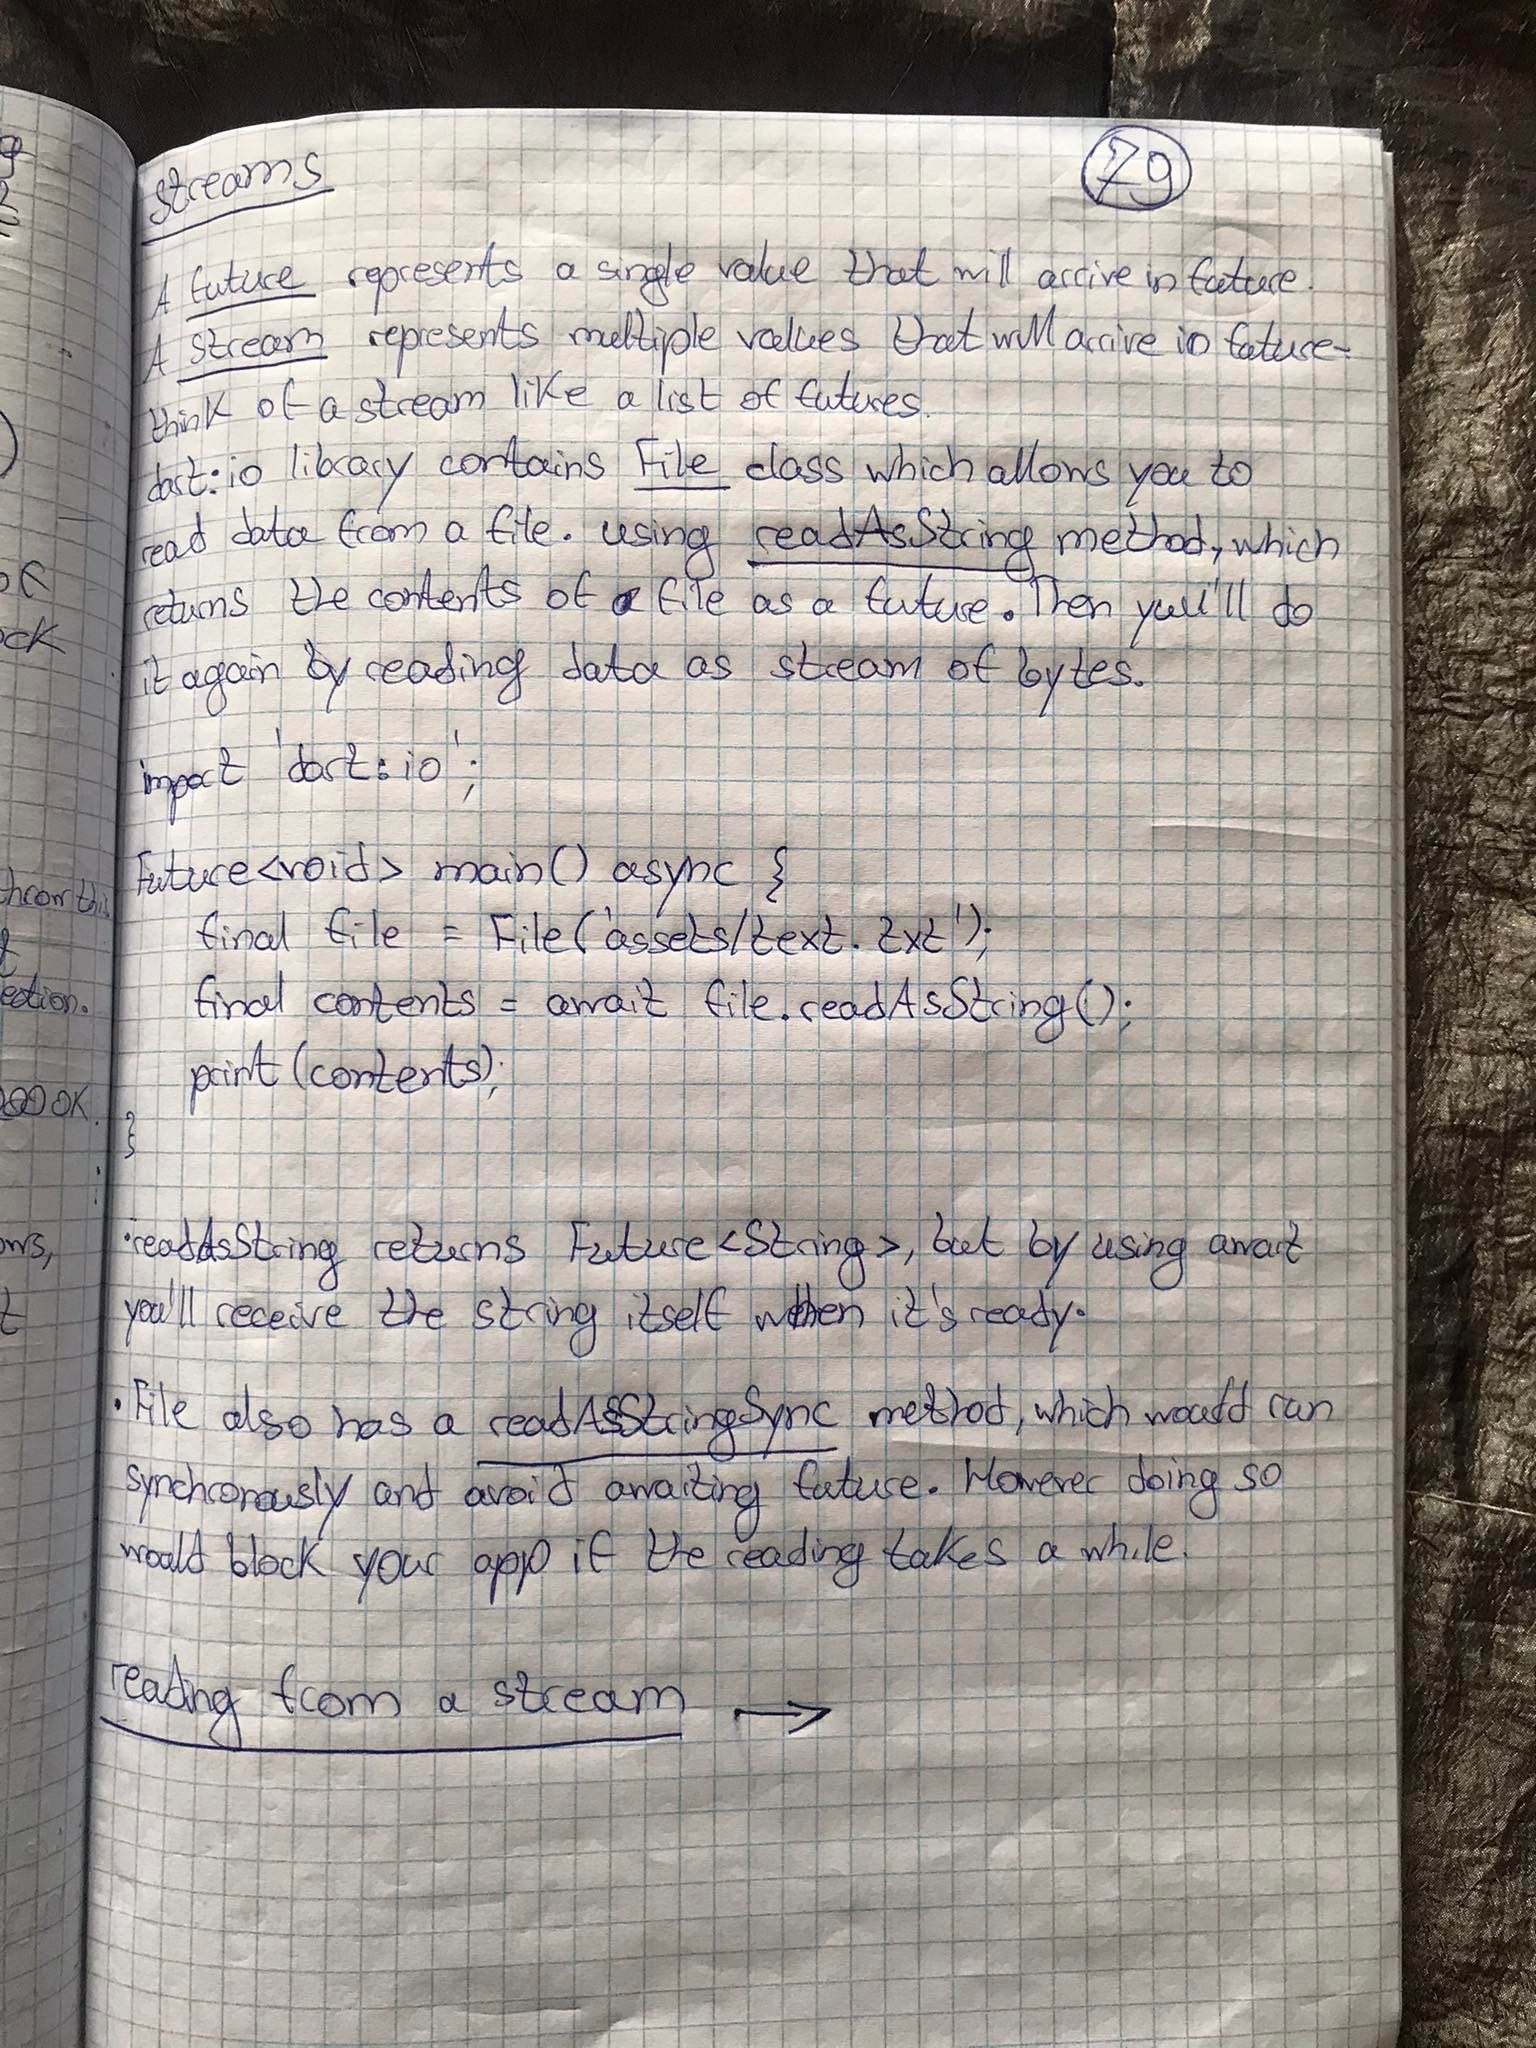 streams
79
A future represents a single value that will arrive in future.
A stream represents multiple values that will arrive in future-
think of a stream like a list of futures.
dart:io library contains File class which allows you to
read data from a file. using readAsString method, which
returns the contents of a file as a future. Then you'll do
it again by reading data as stream of bytes.
import 'dart:io';
Future<void> main() async {
final file = File('assets/text.txt');
final contents = await file.readAsString();
print(contents);
}
•readAsString returns Future<String>, but by using await
you'll receive the string itself when it's ready.
•File also has a readAsStringSync method, which would run
synchronously and avoid awaiting future. However doing so
would block your app if the reading takes a while.
reading from a stream →